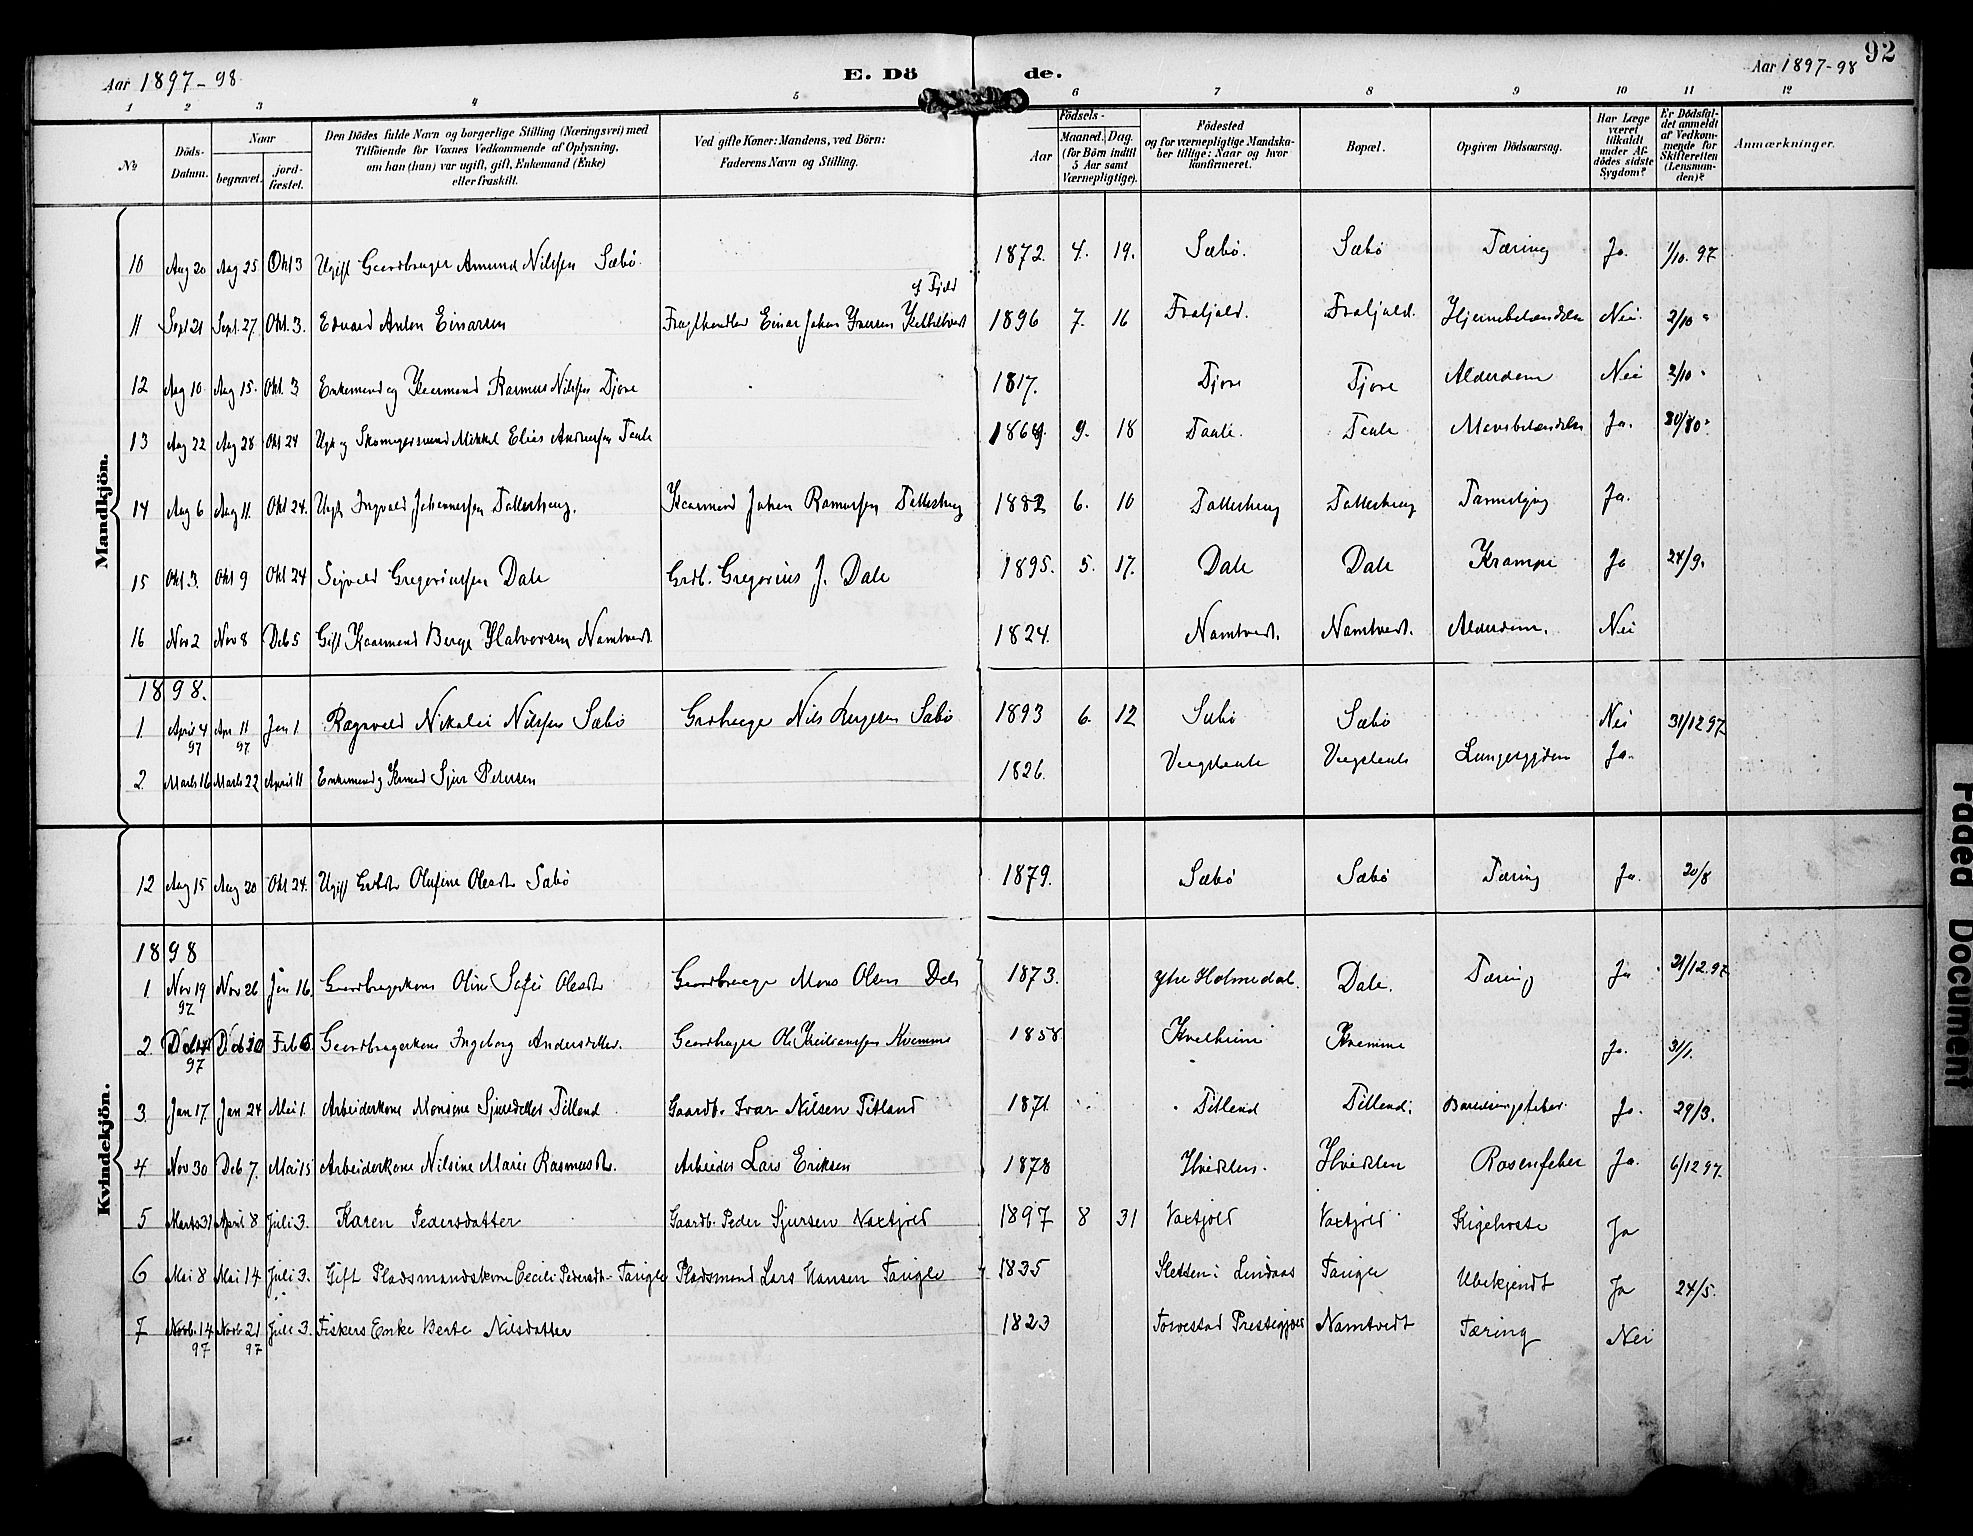 92
Aar 1897-98
E. Döde.
Aar 1897-98
1 2 3 4 5 6 7 8 9 10 11 12
No
Döds-Datum.
Naar
begravet.
jord-fæstet.
Den Dödes fulde Navn og borgerlige Stilling (Næringsvei) med
Tilföiende for Voxnes Vedkommende af Oplysning,
om han (hun) var ugift, gift, Enkemand (Enke)
eller fraskilt.
Ved gifte Koner: Mandens, ved Börn:
Faderens Navn og Stilling.
Födsels-
Aar
Maaned. Dag.
(for Börn indtil
5 Aar samt
Værnepligtige).
Födested
og for værnepligtige Mandska-
ber tillige: Naar og hvor
konfirmeret.
Bopæl.
Opgiven Dödsaarsag.
Har Læge
været
tilkaldt
under Af-
dödes sidste
Sygdom?
Er Dödsfal-
det anmeldt
af Vedkom-
mende for
Skifteretten
(Lensman-
den)?
Anmærkninger.
Mandkjön.
10 Aug 20 Aug 25 Okt 3 Ugift Gaardbruger Amund Nilssen Sæbö. 1872. 4. 19. Sæbö. Sæbö Tæring Ja. 1/10. 97
11 Sept 21 Sept. 27. Okt. 3. Edvard Anton Einarsen Einar Johan 1896 7. 16 Nei. 2/10 "
12 Aug 10 Aug 15. Okt. 3 Enkemand og Kaarmand Rasmus Nilssen Tjore 1817. Tjore Tjore Alderdom Nei 2/10 "
13 Aug 22 Aug 28 Okt 24 Mikkal Elias 1869. 9. 18 Ja.
14 Aug 6 Aug 11. Okt 24. Ingvald Johannessen Kaarmand Johan Rasmussen 1882 6. 10 Ja.
15 Okt 3. Okt 9 Okt 24 Sigvald Gregoriussen Dale Grdb. Gregorius J. Dale 1895. 5. 17. Dale Dale Krampe Ja 24/9.
16 Nov 2 Nov 8 Deb 5 Gift Kaarmand Berge Halvorsen Namtvedt. 1824. Namtvedt. Namtvedt. Alderdom. Nei
1898.
1 April 4 97 Apr 11 97. Jan 1 Ragnvald Nikolai Nilssen Sæbö Nils Sæbö 1893 6. 12 Sæbö Sæbö Nei 31/12 97
2 Marts 16 Marts 22 April 11 Sjur Petersen 1826. Ja.
Kvindekjön.
12 Aug 15 Aug 20 Okt 24. Ugift Olufine Olesdtr Sæbö 1879. Sæbö Sæbö Tæring Ja. 20/8
1898
1 Nov 19 97 Nov 26 Jan 16. Gaardbrugerkone Oline Olesdtr Gaardbruger Mons Olsen Dale 1873. Ytre Holmedal. Dale. Tæring Ja 31/12. 97
2 97 Feb 6 Gaardbrugerkone Ingeborg Andersdatter. Gaardbruger Kvamme 1858 Kvamme Ja. 31/1.
3. Jan 17 Jan 24 Mai 1. Arbeiderkone Monsine Sjursdatter Titland Gaardb. Ivar Nilsen Titland 1871 Titland Titland. Barselungsfeber Ja. 29/3.
4 Nov 30 Deb 7. Mai 15 Arbeiderkone Nilsine Marie Rasmusdtr. Arbeider Lars Eriksen 1878 Rosenfeber Ja. 6/12 97.
5 Marts 31 April 8 Juli 3. Karen Pedersdatter Gaardb. Peder Sjursen Vaxtjold 1897 8 31 Vaxtjold Vaxtjold Kighoste Ja
6 Mai 8 Mai 14 Juli 3. Gift Pladsmandskone Cecilie Pedersdt. Taugle Pladsmand Lars Hansen Taugle 1835 Sletten i Lindaas Taugle Ubekjendt Ja 24/5.
7 Novb. 14 97 Novb. 21 97 Juli 3. Fiskers Enke Berte Nilsdatter 1823 Torvestad Prestegjæld Namtvedt Tæring Nei
Faded Document